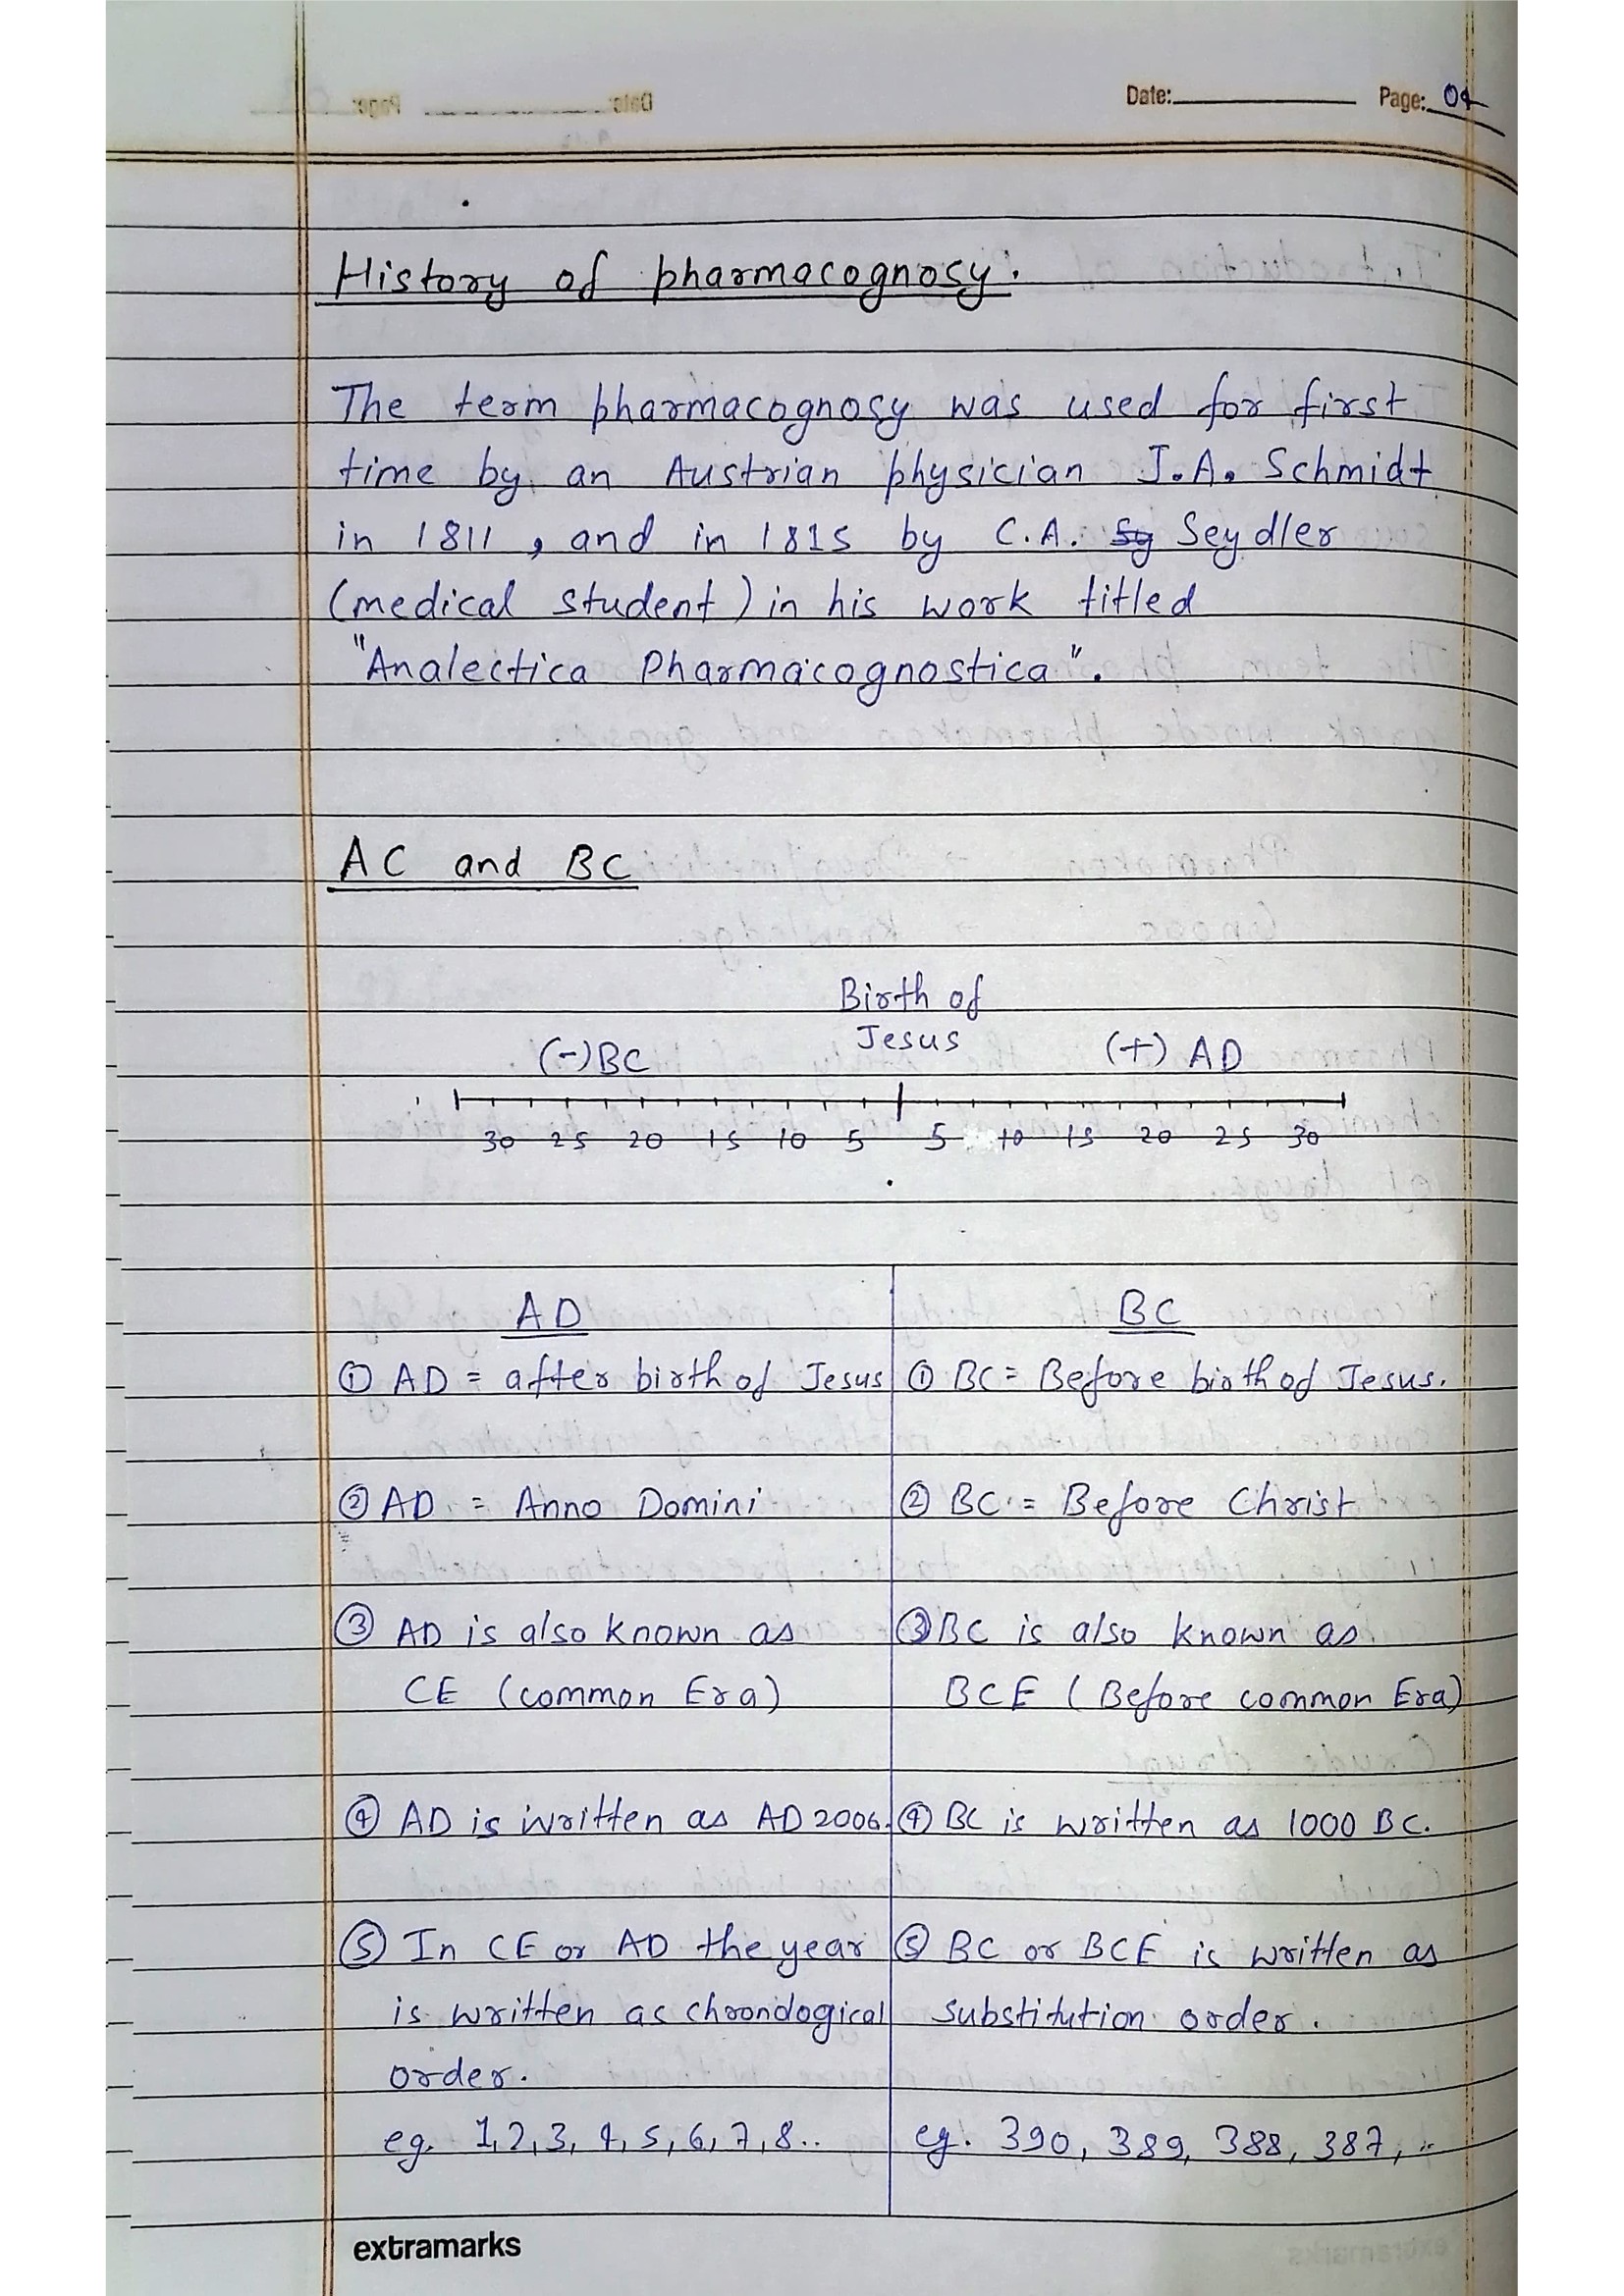 Date: Page: 04
History of pharmacognosy.
The term pharmacognosy was used for first
time by an Austrian physician J.A. Schmidt
in 1811, and in 1815 by C.A. Sy Seydler
(medical student) in his work titled
"Analectica Pharmacognostica".
AC and BC
Birth of
Jesus
(-)BC (+) AD
30 25 20 15 10 5 5 10 15 20 25 30
AD BC
① AD = after birth of Jesus ① BC = Before birth of Jesus.
② AD = Anno Domini ② BC = Before Christ
③ AD is also known as ③ BC is also known as
CE (common Era) BCE (Before common Era)
④ AD is written as AD 2006. ④ BC is written as 1000 BC.
⑤ In CE or AD the year ⑤ BC or BCE is written as
is written as chrondogical substitution order.
order.
eg. 1,2,3,4,5,6,7,8.. eg. 390, 389, 388, 387,..
extramarks